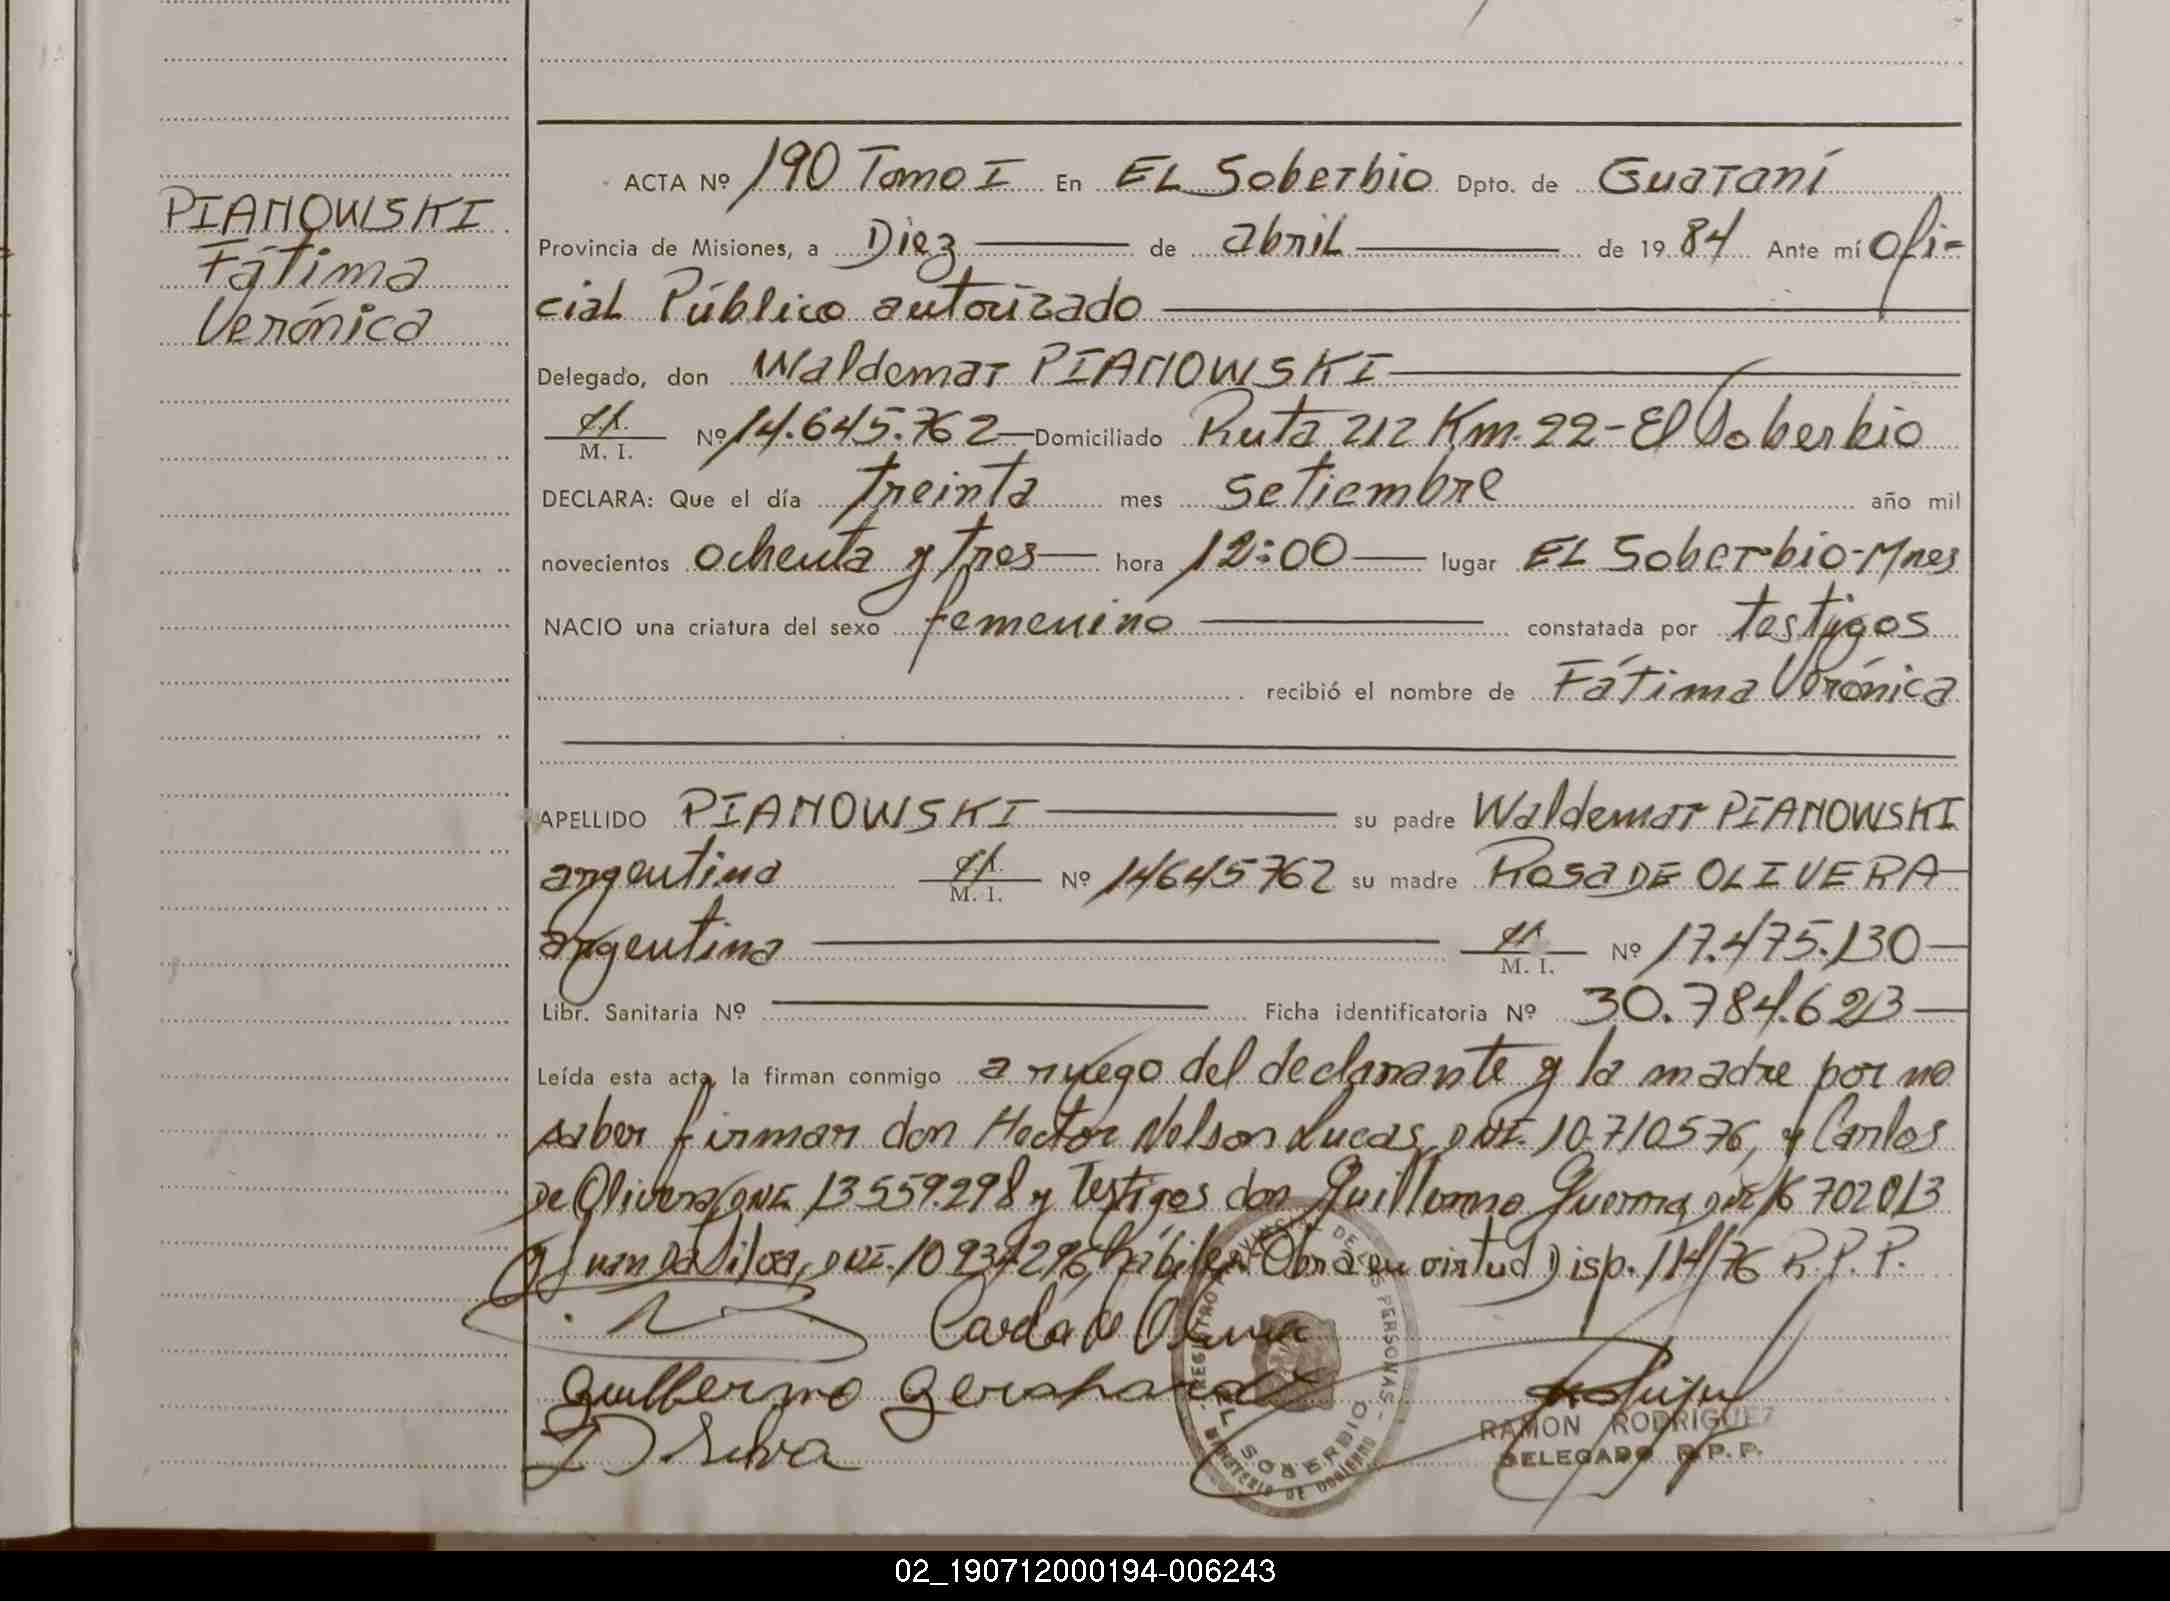 PIANOWSKI
Fátima
Verónica
ACTA Nº 190 Tomo I En EL Soberbio Dpto. de Guaraní
Provincia de Misiones, a Diez de abril de 1984 Ante mí Ofi-
cial Público autorizado
Delegado, don Waldemar PIANOWSKI
M. I. Nº 14.645.762 Domiciliado Ruta 212 Km. 22 - El Soberbio
DECLARA: Que el día treinta mes setiembre año mil
novecientos ochenta y tres hora 12:00 lugar EL Soberbio - Mnes
NACIO una criatura del sexo femenino constatada por testigos
recibió el nombre de Fátima Verónica
APELLIDO PIANOWSKI su padre Waldemar PIANOWSKI
argentino M. I. Nº 14645762 su madre Rosa DE OLIVERA
argentina M. I. Nº 17.475.130
Libr. Sanitaria Nº Ficha identificatoria Nº 30.784.623
Leída esta acta, la firman conmigo a ruego del declarante y la madre por no
saber firmar don Hector Nelson Lucas, DNI. 10.710576, y Carlos
De Olivera, DNI. 13559.298 y Testigos don Guillermo Guerra, DNI 16702013
y Juan Da Silva, DNI. 10934296, hábiles. Obra en virtud Disp. 114/76 R.P.P.
Guillermo
D Silva
REGISTRO PROVINCIAL DE LAS PERSONAS
EL SOBERBIO
MINISTERIO DE GOBIERNO
RAMON RODRIGUEZ
DELEGADO R.P.P.
02_190712000194-006243